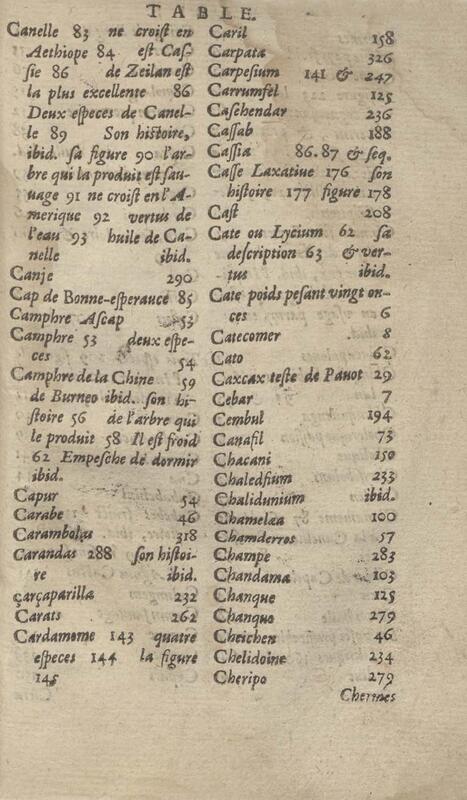 TABLE.
Canelle 83 ne croist en
Aethiope 84 est Caſ-
ſie 86 de Zeilan eſt
la plus excellente 86
Deux eſpeces de Canel-
le 89 Son hiſtoire,
ibid. ſa figure 90 l'ar-
bre qui la produit eſt ſau-
uage 91 ne croiſt en l'A-
merique 92 vertus de
l'eau 93 huile de Ca-
nelle ibid.
Canje 290
Cap de Bonne-eſperance 85
Camphre Aſcap 53
Camphre 53 deux eſpe-
ces 54
Camphre de la Chine 59
de Burneo ibid. ſon hi-
ſtoire 56 de l'arbre qui
le produit 58 Il eſt froid
62 Empeſche de dormir
ibid.
Capur 54
Carabe 46
Carambolas 318
Carandas 288 ſon hiſtoi-
re ibid.
çarçaparilla 232
Carats 262
Cardamome 143 quatre
eſpeces 144 la figure
145
Caril 158
Carpata 326
Carpeſium 141 & 247
Carrumfel 125
Caſchendar 236
Caſſab 188
Caſſia 86.87 & ſeq.
Caſſe Laxatiue 176 ſon
hiſtoire 177 figure 178
Caſt 208
Cate ou Lycium 62 ſa
deſcription 63 & ver-
tus ibid.
Cate poids peſant vingt on-
ces 6
Catecomer 8
Cato 62
Caxcax teſte de Pauot 29
Cebar 7
Cembul 194
Canafil 73
Chacani 150
Chaledſium 233
Chalidunium ibid.
Chamelæa 100
Chamderros 57
Champe 283
Chandama 103
Chanque 125
Chanquo 279
Cheichen 46
Chelidoine 234
Cheripo 279
Chermes